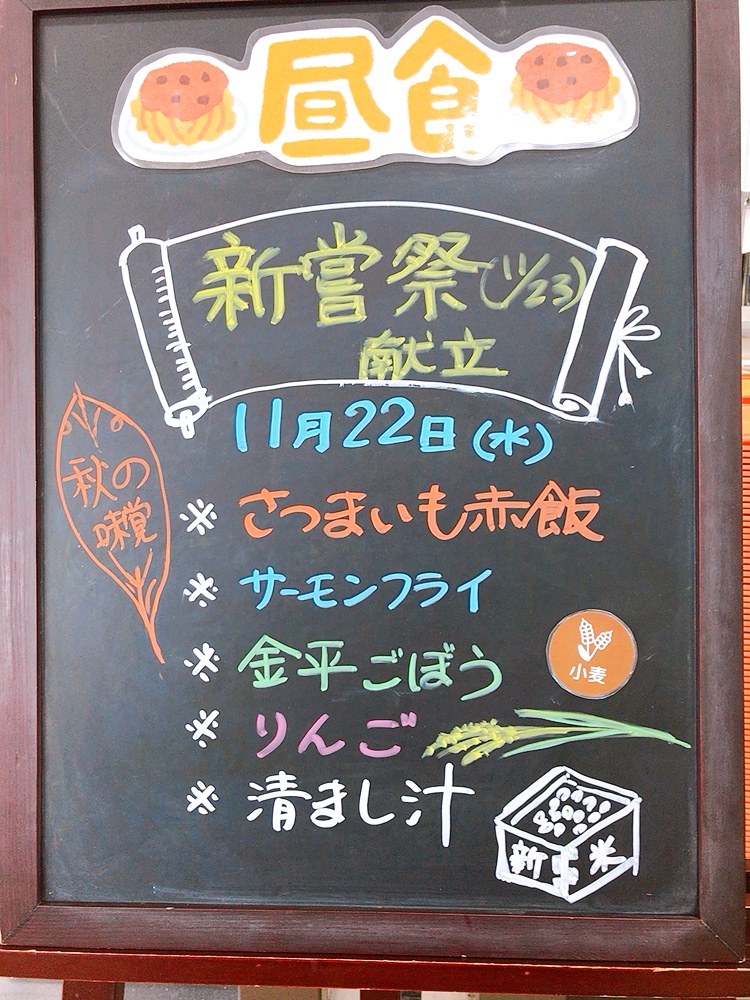 昼食
新嘗祭(11/23)
献立
11月22日(水)
秋の
味覚
※ さつまいも赤飯
※ サーモンフライ
※ 金平ごぼう
小麦
※ りんご
※ 清まし汁
新米